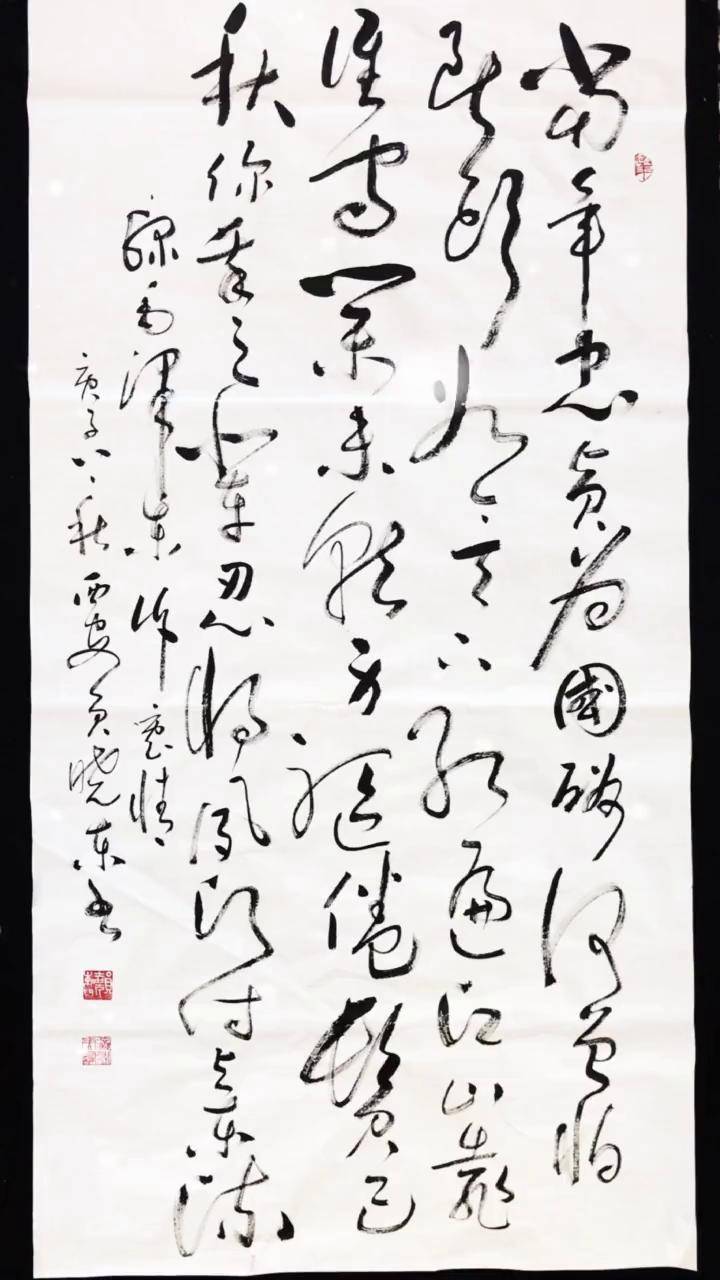 當年忠贞为國酬何曾怕
断头如今天下红遍江山靠
谁守業未就身躯倦鬓已
秋你我之辈忍将夙愿付与东流
录毛泽东诉衷情
庚子之秋西安员晓东书